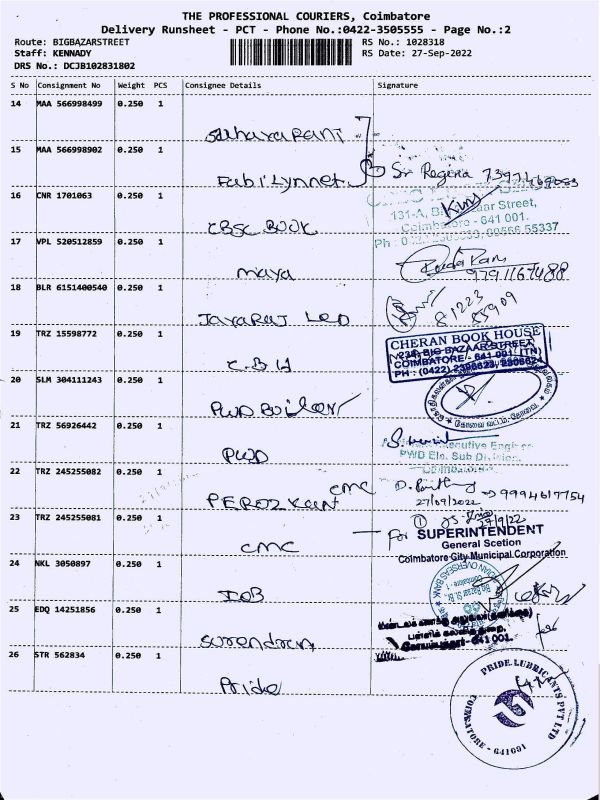 THE PROFESSIONAL COURIERS, Coimbatore
Delivery Runsheet - PCT - Phone No.:0422-3505555 - Page No.:2
Route: BIGBAZARSTREET
Staff: KENNADY
DRS No.: DCJB102831802
RS No.: 1028318
RS Date: 27-Sep-2022
S No Consignment No Weight PCS Consignee Details Signature
14 MAA 566998499 0.250 1
Sahayarani
15 MAA 566998902 0.250 1
Fabi Lynnet Sr Regina
16 CNR 1701063 0.250 1
131-A, Big Bazaar Street,
Coimbatore - 641 001.
CBSC BOOK
17 VPL 520512859 0.250 1
maya
9791167488
18 BLR 6151400540 0.250 1
JAYARAJ LED
81223
19 TRZ 15598772 0.250 1
C.B.H
CHERAN BOOK HOUSE
234, BIG BAZAAR STREET
COIMBATORE - 641 001 (TN)
PH : (0422) 2396623,
20 SLM 304111243 0.250 1
PWD Boiler
21 TRZ 56926442 0.250 1
PWD
Executive Engineer
PWD Ele. Sub Division,
Coimbatore
22 TRZ 245255082 0.250 1
PEROZ KAN CMC
27/09/2022 9994617754
23 TRZ 245255081 0.250 1
CMC
For SUPERINTENDENT
General Scetion
Coimbatore City Municipal Corporation
24 NKL 3050897 0.250 1
IOB
INDIAN OVERSEAS BANK
25 EDQ 14251856 0.250 1
Surendran
641 001.
26 STR 562834 0.250 1
Pride
PRIDE LUBRICANTS PVT LTD
COIMBATORE - 641001